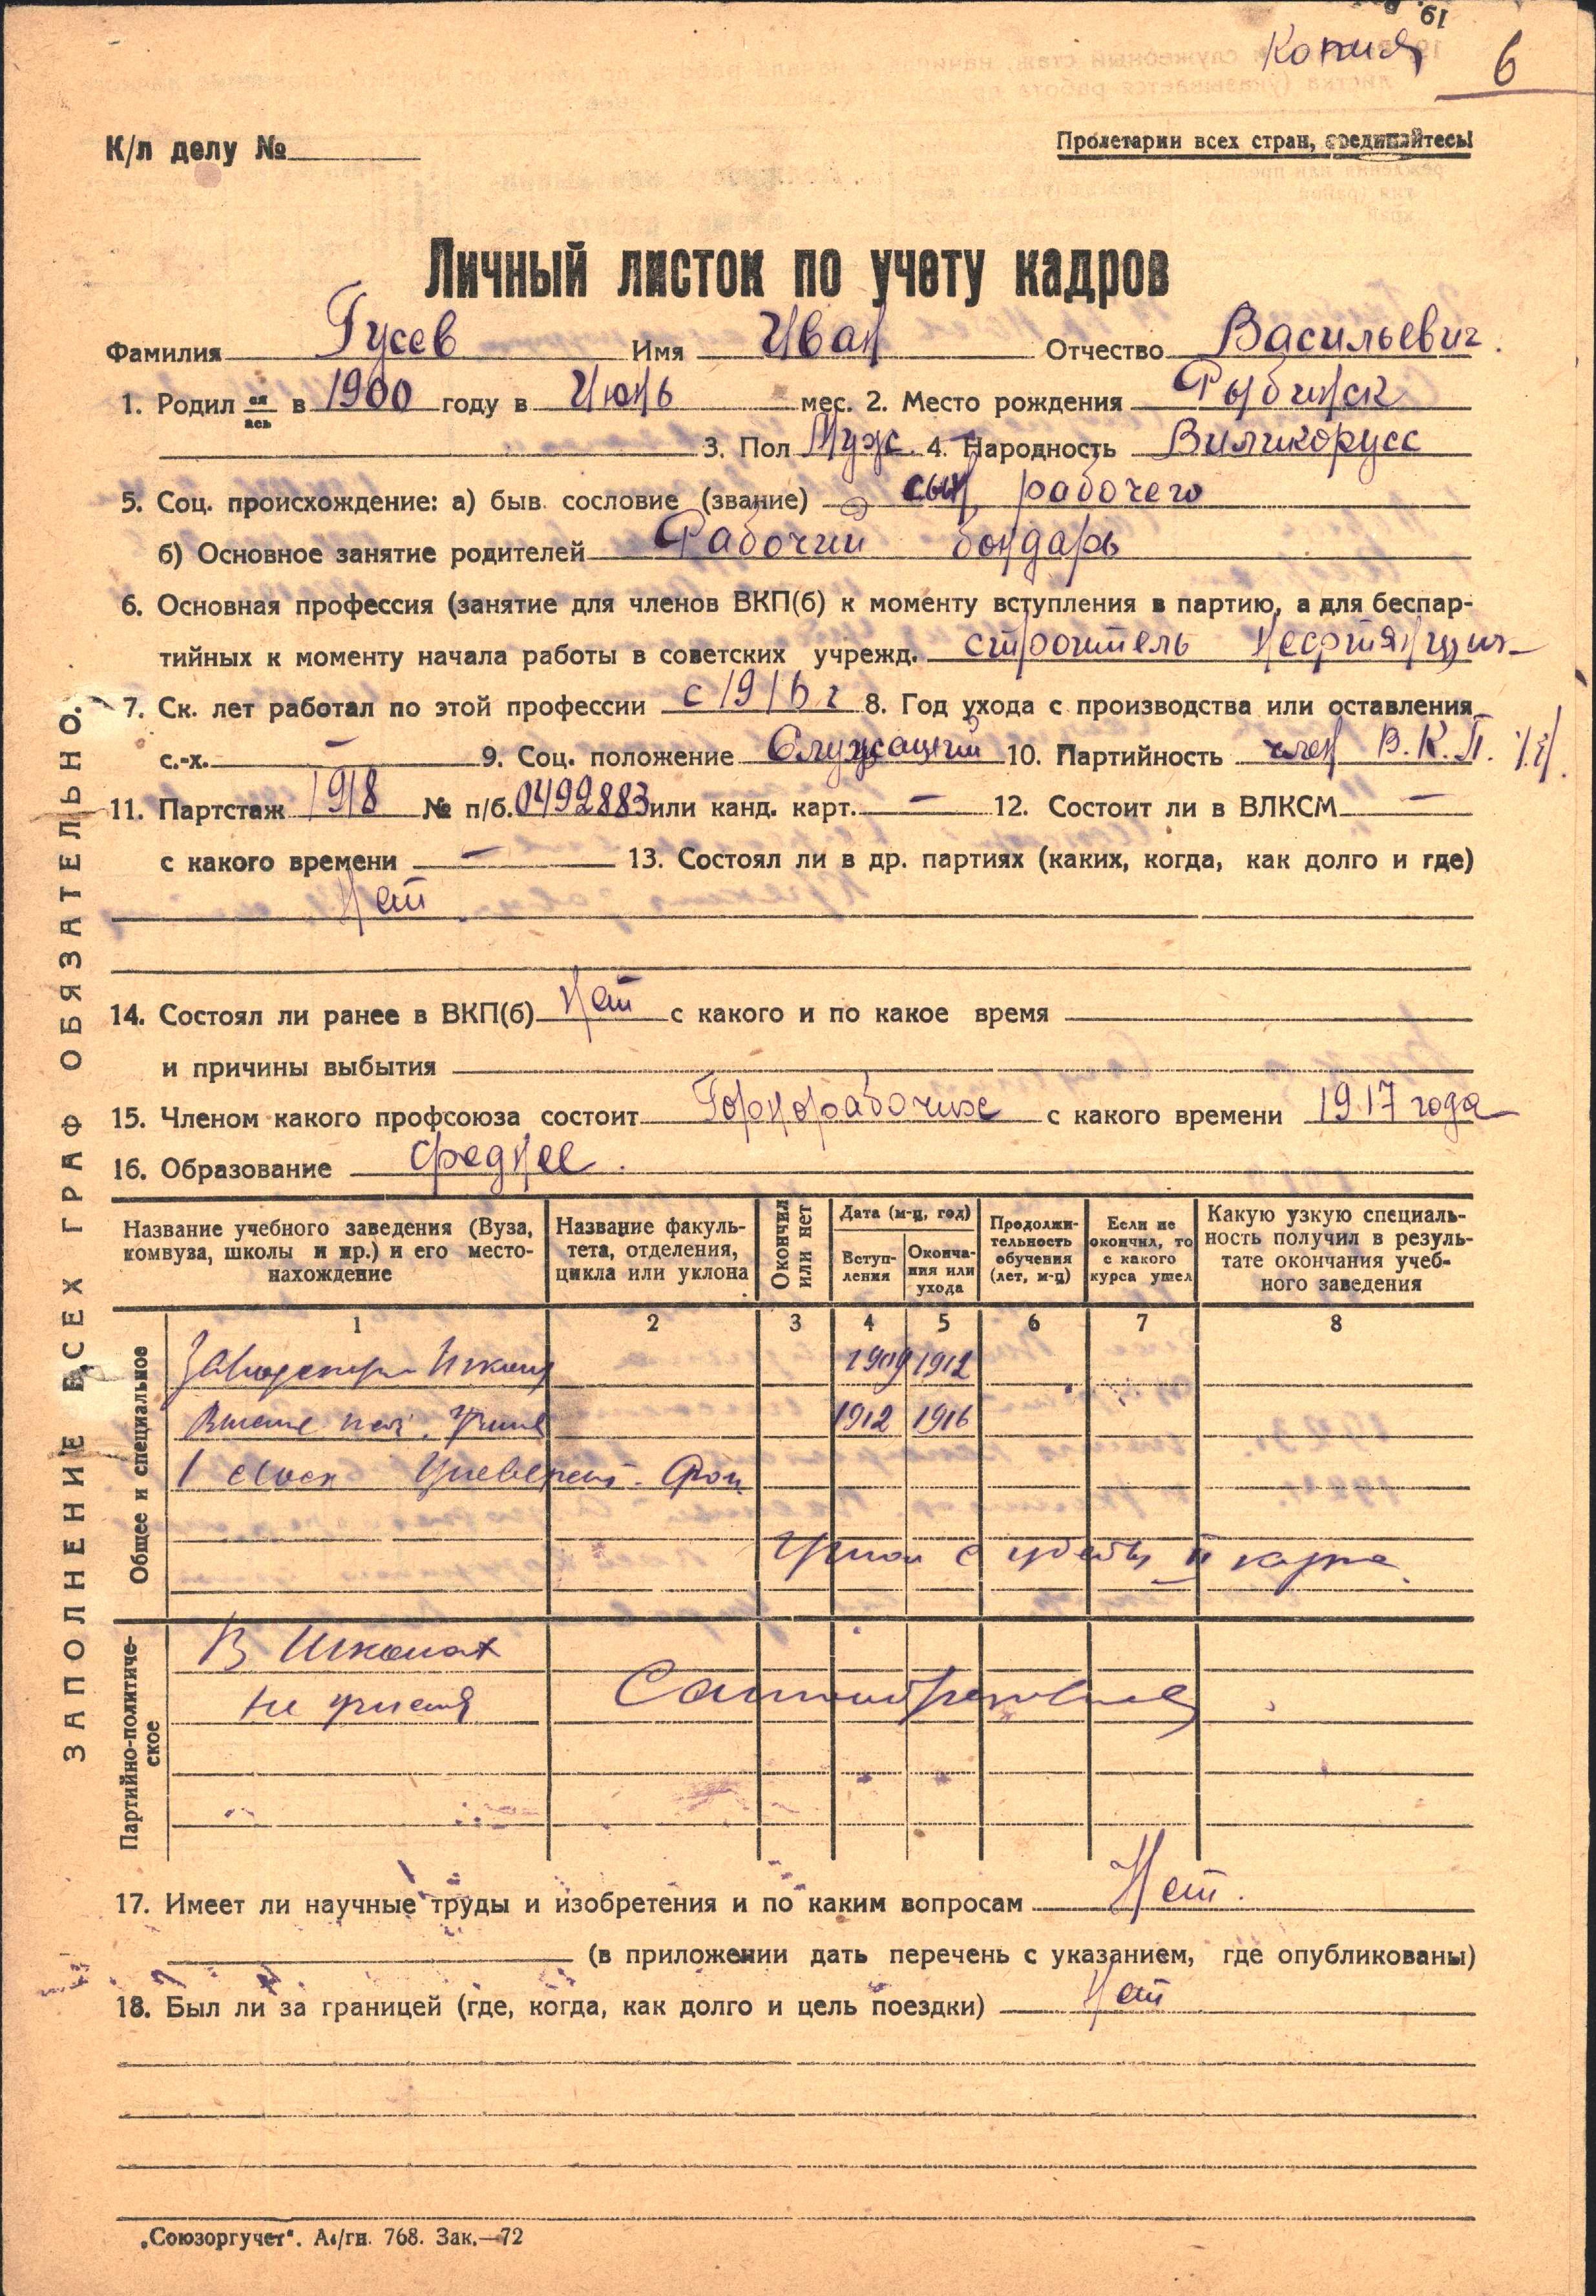 Копия
6
К/л делу №
Пролетарии всех стран, соединяйтесь!
Личный листок по учету кадров
Фамилия Гусев Имя Иван Отчество Васильевич.
1. Родил ся ась в 1900 году в Июнь мес. 2. Место рождения Рыбинск
3. Пол Муж. 4. Народность Виликорусс
5. Соц. происхождение: а) быв. сословие (звание) сын рабочего
б) Основное занятие родителей Рабочий бондарь
6. Основная профессия (занятие для членов ВКП(б) к моменту вступления в партию, а для беспар-
тийных к моменту начала работы в советских учрежд. строитель
7. Ск. лет работал по этой профессии с 1916 г 8. Год ухода с производства или оставления
с.-х. – 9. Соц. положение Служащий 10. Партийность член В.К.П.
11. Партстаж 1918 № п/б. 0492883 или канд. карт. – 12. Состоит ли в ВЛКСМ –
с какого времени – 13. Состоял ли в др. партиях (каких, когда, как долго и где)
Нет
14. Состоял ли ранее в ВКП(б) Нет с какого и по какое время
и причины выбытия
15. Членом какого профсоюза состоит Горнорабочих с какого времени 1917 года
16. Образование Среднее.
Название учебного заведения (Вуза, комвуза, школы и пр.) и его место-нахождение
Название факуль-тета, отделения, цикла или уклона
Окончил или нет
Дата (м-ц, год)
Вступ-ления
Оконча-ния или ухода
Продолжи-тельность обучения (лет, м-ц)
Если не окончил, то с какого курса ушел
Какую узкую специаль-ность получил в резуль-тате окончания учеб-ного заведения
1 2 3 4 5 6 7 8
Общее и специальное
Школа 1909 1912
Высше нач. Учил 1912 1916
1
Ушол с учебы II курса.
Партийно-политиче-ское
В Школах
не учился
Самообразование
17. Имеет ли научные труды и изобретения и по каким вопросам Нет.
(в приложении дать перечень с указанием, где опубликованы)
18. Был ли за границей (где, когда, как долго и цель поездки) Нет
ЗАПОЛНЕНИЕ ВСЕХ ГРАФ ОБЯЗАТЕЛЬНО.
„Союзоргучет“. А4/гн. 768. Зак.—72